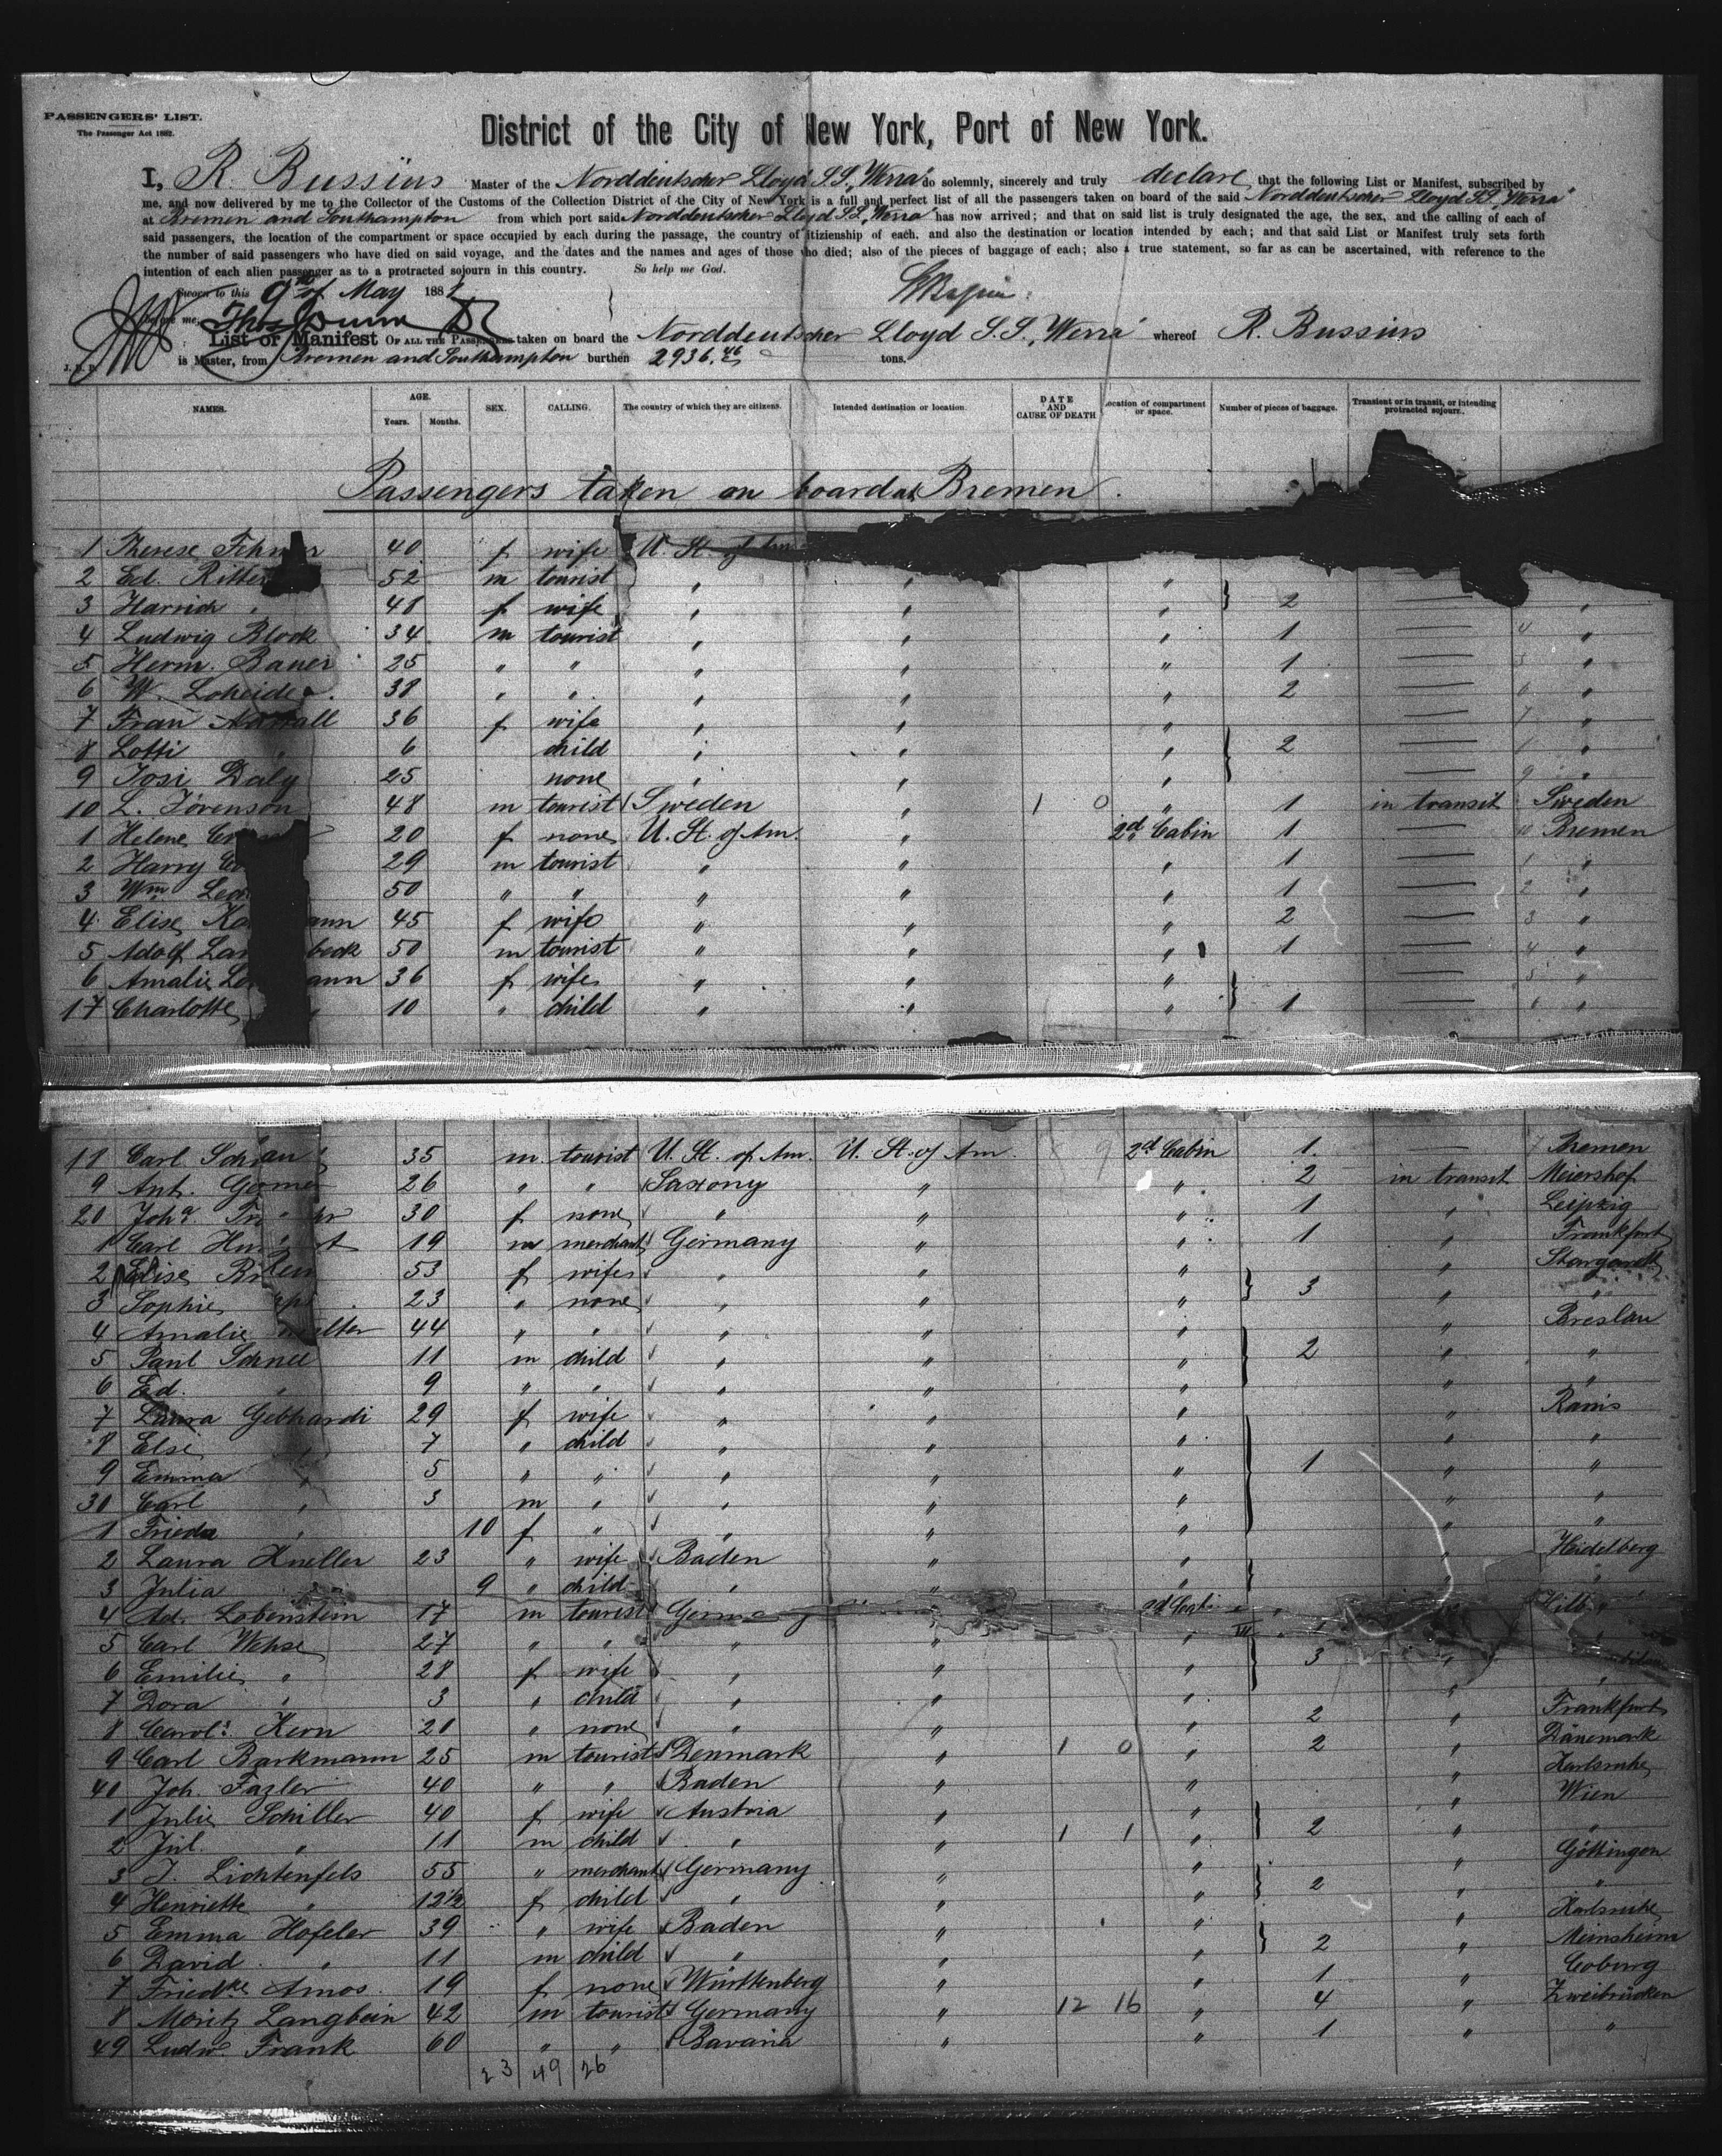 PASSENGERS' LIST.
The Passenger Act 1882.
District of the City of New York, Port of New York.
I, R. Bussius Master of the Norddeutscher Lloyd S.S. „Werra" do solemnly, sincerely and truly declare that the following List or Manifest, subscribed by
me, and now delivered by me to the Collector of the Customs of the Collection District of the City of New York is a full and perfect list of all the passengers taken on board of the said Norddeutscher Lloyd S.S. „Werra"
at Bremen and Southampton from which port said Norddeutscher Lloyd S.S. „Werra" has now arrived; and that on said list is truly designated the age, the sex, and the calling of each of
said passengers, the location of the compartment or space occupied by each during the passage, the country of citizienship of each, and also the destination or location intended by each; and that said List or Manifest truly sets forth
the number of said passengers who have died on said voyage, and the dates and the names and ages of those who died; also of the pieces of baggage of each; also a true statement, so far as can be ascertained, with reference to the
intention of each alien passenger as to a protracted sojourn in this country. So help me God.
Sworn to this 9th of May 188
before me, Thos Dunn
List or Manifest OF ALL THE PASSENGERS taken on board the Norddeutscher Lloyd S.S. „Werra" whereof R. Bussius
is Master, from Bremen and Southampton burthen 2936.46 tons.
NAMES. AGE. Years. Months. SEX. CALLING. The country of which they are citizens. Intended destination or location. DATE AND CAUSE OF DEATH Location of compartment or space. Number of pieces of baggage. Transient or in transit, or intending protracted sojourn.
Passengers taken on board at Bremen.
1 Therese 40 f wife U. St. of Am.
2 Ed. Ritter 52 m tourist " " "
3 Harrich " 48 f wife " " " 2 — "
4 Ludwig Block 34 m tourist " " " 1 — "
5 Herm. Bauer 25 " " " " " 1 — "
6 W. Loheide 38 " " " " " 2 — "
7 Frau 36 f wife " " " — "
8 Lotti " 6 child " " " 2 — "
9 Josi Daly 25 none " " " — "
10 L. Törenson 48 m tourist Sweden " 1 0 " 1 in transit Sweden
1 Helene 20 f none U. St. of Am. " 2d Cabin 1 — Bremen
2 Harry 29 m tourist " " " 1 — "
3 Wm. 50 " " " " " 1 — "
4 Elise 45 f wife " " " 2 — "
5 Adolf 50 m tourist " " " 1 — "
6 Amalie 36 f wife " " " — "
17 Charlotte " 10 " child " " " 1 — "
11 Carl 35 m tourist U. St. of Am. U. St. of Am. 2d Cabin 1. — Bremen
9 Ant. 26 " " Saxony " " 2 in transit Meiershof
20 Joha. 30 f none " " " 1 " Leipzig
1 Carl 19 m merchant Germany " " 1 " Frankfurt
2 Elise 53 f wife " " " " Stargardt
3 Sophie 23 " none " " " 3 " "
4 Amalie 44 " " " " " " Breslau
5 Paul Schnell 11 m child " " " 2 " "
6 Ed. " 9 " " " " " " "
7 Laura Gebhardi 29 f wife " " " " Ranis
8 Else " 7 " child " " " " "
9 Emma " 5 " " " " " 1 " "
30 Carl " 3 m " " " " " "
1 Frieda " 10 f " " " " " "
2 Laura Kneller 23 " wife Baden " " " Heidelberg
3 Julia 9 " child " " " "
4 Ad. Lobenstein 17 m tourist Germany " 2d Cabin
5 Carl Wehse 27 " " " " "
6 Emilie " 28 f wife " " " 3 "
7 Dora " 3 " child " " " " "
8 Carola. Kern 20 " none " " " 2 " Frankfurt
9 Carl Barkmann 25 m tourist Denmark " 1 0 " 2 " Dänemark
40 Joh. Fazler 40 " " Baden " " " Karlsruhe
1 Julie Schiller 40 f wife Austria " " " Wien
2 Jul. " 11 m child " " 1 1 " 2 " "
3 J. Lichtenfels 55 " merchant Germany " " " Göttingen
4 Henriette " 12 1/2 f child " " " 2 " "
5 Emma Hofeler 39 " wife Baden " " " Karlsruhe
6 David " 11 m child " " " 2 " Meinsheim
7 Friedke Amos 19 f none Württenberg " " 1 " Coburg
8 Moritz Langbein 42 m tourist Germany " 12 16 " 4 " Zweibrücken
49 Ludw. Frank 60 " " Bavaria " " 1 " "
23 49 26